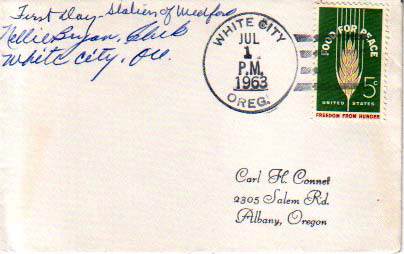 First Day - Station of Medford
Nellie Bryan, Clerk
White City, Ore.
WHITE CITY
JUL
1
P.M.
1963
OREG.
FOOD FOR PEACE
5c
UNITED STATES
FREEDOM FROM HUNGER
Carl H. Connet
2305 Salem Rd.
Albany, Oregon